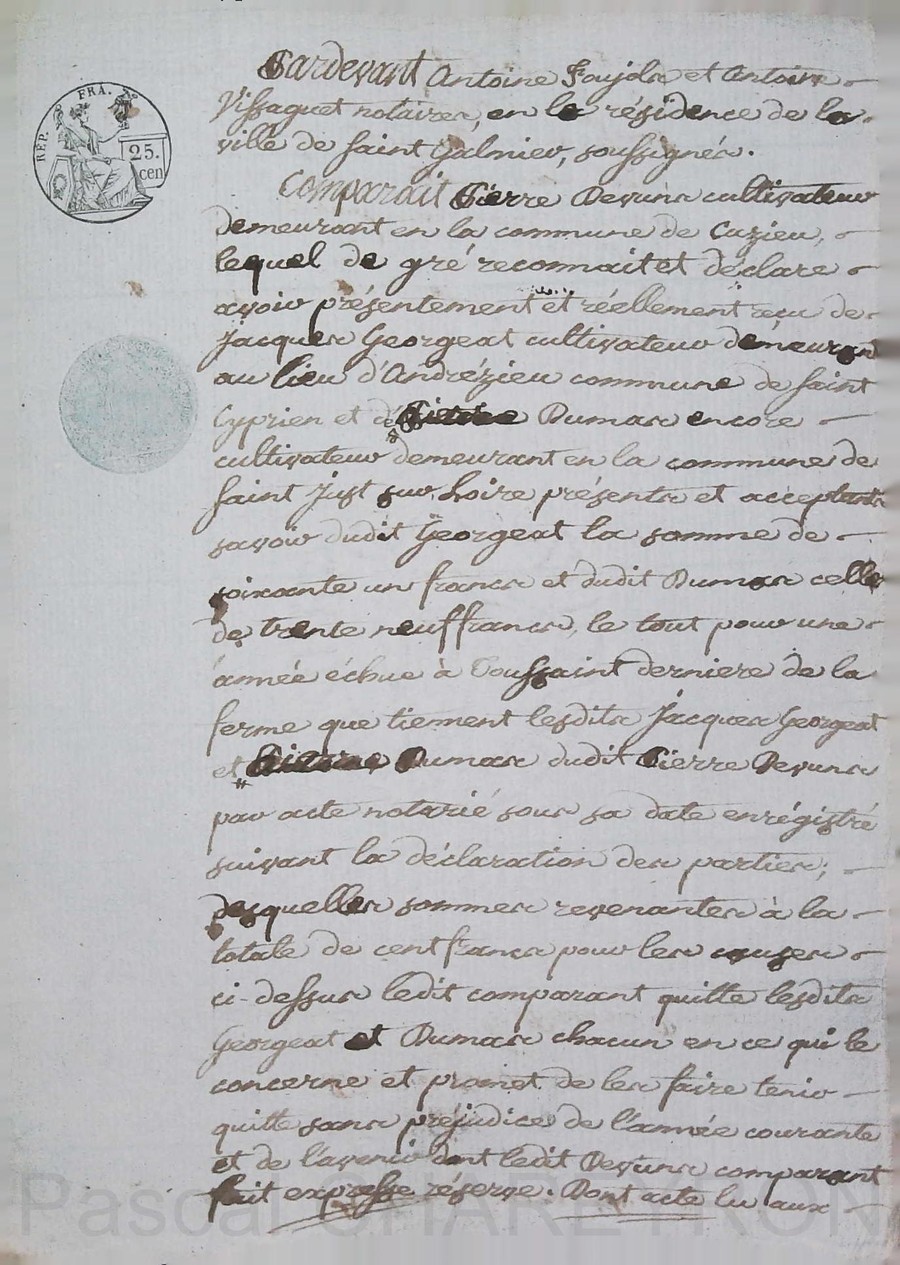 RÉP. FRA. Nle
25.
cen
Pardevant Antoine Faujola et Antoine
Vissaguet notaires, en la résidence de la
ville de Saint Galmier, soussignés.
Comparait Pierre Devuns cultivateur
demeurant en la commune de Cuzieu,
lequel de gré reconnait et déclare
avoir présentement et réellement reçu de
Jacques Georgeat cultivateur demeurant
au lieu d'Andrézieu commune de Saint
Cyprien et de Dumas encore
cultivateur demeurant en la commune de
Saint Just sur Loire présents et acceptants
savoir dudit Georgeat la somme de
soixante un francs et dudit Dumas celle
de trente neuf francs, le tout pour une
année échue à Toussaint derniere de la
ferme que tiennent lesdits Jacques Georgeat
et Dumas dudit Pierre Devuns
par acte notarié sous sa date enrégistré
suivant la déclaration des parties;
desquelles sommes revenantes à la
totale de cent francs pour les causes
ci-dessus ledit comparant quitte lesdits
Georgeat et Dumas chacun en ce qui le
concerne et promet de les faire tenir
quitte sans préjudice de l'année courante
et de l'avenir dont ledit Devuns comparant
fait expresse réserve. Dont acte lu aux
Pascal CHAREYRON